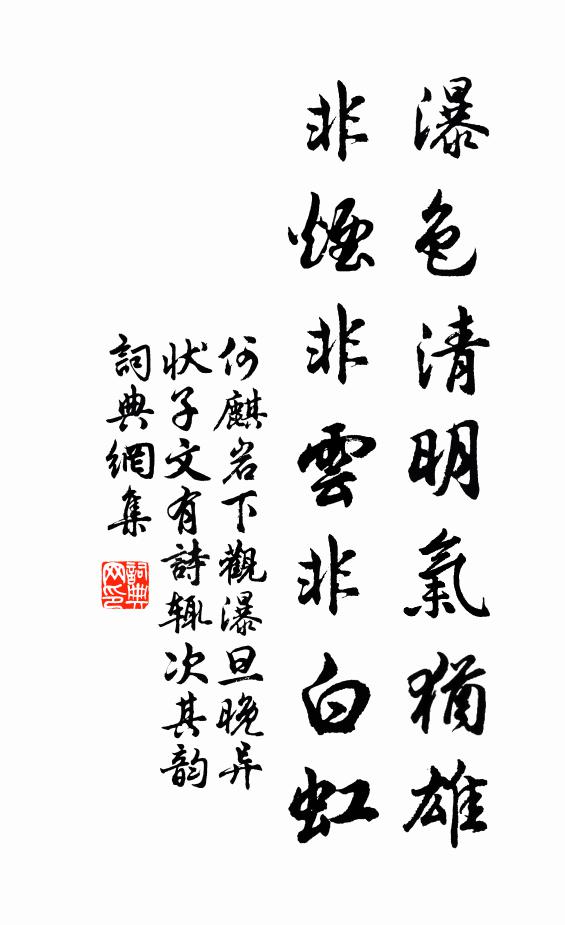 瀑色清明氣猶雄
非煙非雲非白虹
何麒岩下觀瀑旦晚异
状子文有詩辄次其韵
詞典網集
詞典
网印